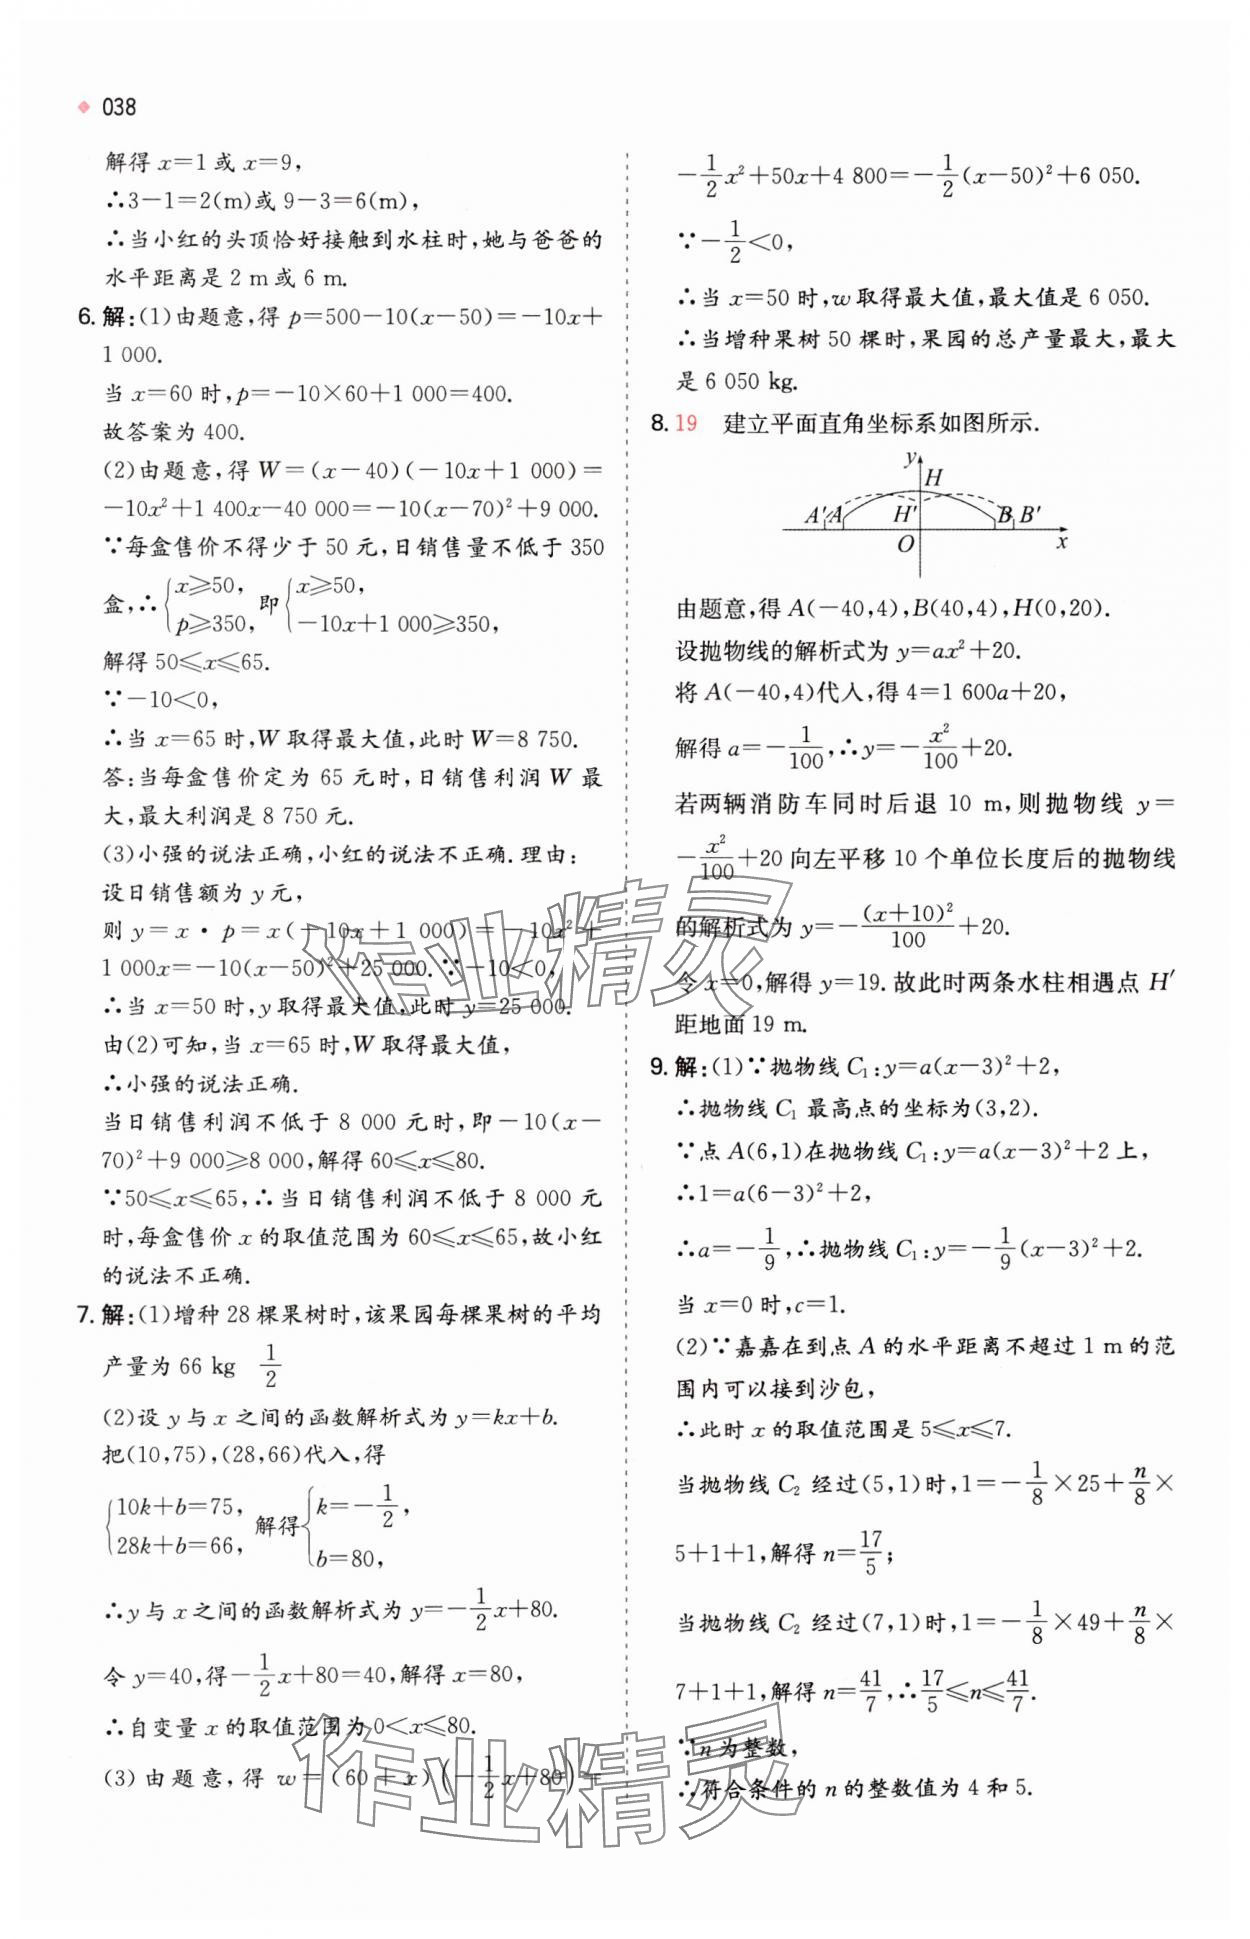 038
解得 x=1 或 x=9,
∴3-1=2(m)或 9-3=6(m),
∴当小红的头顶恰好接触到水柱时,她与爸爸的
水平距离是 2 m 或 6 m.
6. 解:(1)由题意,得 p=500-10(x-50)=-10x+
1 000.
当 x=60 时,p=-10×60+1 000=400.
故答案为 400.
(2)由题意,得 W=(x-40)(-10x+1 000)=
-10x²+1 400x-40 000=-10(x-70)²+9 000.
∵每盒售价不得少于 50 元,日销售量不低于 350
盒,∴{x≥50, p≥350, 即{x≥50, -10x+1 000≥350,
解得 50≤x≤65.
∵-10<0,
∴当 x=65 时,W 取得最大值,此时 W=8 750.
答:当每盒售价定为 65 元时,日销售利润 W 最
大,最大利润是 8 750 元.
(3)小强的说法正确,小红的说法不正确.理由:
设日销售额为 y 元,
则 y=x·p=x(-10x+1 000)=-10x²+
1 000x=-10(x-50)²+25 000.∵-10<0,
∴当 x=50 时,y 取得最大值,此时 y=25 000.
由(2)可知,当 x=65 时,W 取得最大值,
∴小强的说法正确.
当日销售利润不低于 8 000 元时,即-10(x-
70)²+9 000≥8 000,解得 60≤x≤80.
∵50≤x≤65,∴当日销售利润不低于 8 000 元
时,每盒售价 x 的取值范围为 60≤x≤65,故小红
的说法不正确.
7. 解:(1)增种 28 棵果树时,该果园每棵果树的平均
产量为 66 kg 1/2
(2)设 y 与 x 之间的函数解析式为 y=kx+b.
把(10,75),(28,66)代入,得
{10k+b=75, 28k+b=66, 解得{k=-1/2, b=80,
∴y 与 x 之间的函数解析式为 y=-1/2x+80.
令 y=40,得-1/2x+80=40,解得 x=80,
∴自变量 x 的取值范围为 0<x≤80.
(3)由题意,得 w=(60+x)(-1/2x+80)=
-1/2x²+50x+4 800=-1/2(x-50)²+6 050.
∵-1/2<0,
∴当 x=50 时,w 取得最大值,最大值是 6 050.
∴当增种果树 50 棵时,果园的总产量最大,最大
是 6 050 kg.
8. 19 建立平面直角坐标系如图所示.
y
H
A' A H' B B'
O x
由题意,得 A(-40,4),B(40,4),H(0,20).
设抛物线的解析式为 y=ax²+20.
将 A(-40,4)代入,得 4=1 600a+20,
解得 a=-1/100,∴y=-x²/100+20.
若两辆消防车同时后退 10 m,则抛物线 y=
-x²/100+20 向左平移 10 个单位长度后的抛物线
的解析式为 y=-(x+10)²/100+20.
令 x=0,解得 y=19.故此时两条水柱相遇点 H'
距地面 19 m.
9. 解:(1)∵抛物线 C₁:y=a(x-3)²+2,
∴抛物线 C₁ 最高点的坐标为(3,2).
∵点 A(6,1)在抛物线 C₁:y=a(x-3)²+2 上,
∴1=a(6-3)²+2,
∴a=-1/9,∴抛物线 C₁:y=-1/9(x-3)²+2.
当 x=0 时,c=1.
(2)∵嘉嘉在到点 A 的水平距离不超过 1 m 的范
围内可以接到沙包,
∴此时 x 的取值范围是 5≤x≤7.
当抛物线 C₂ 经过(5,1)时,1=-1/8×25+n/8×
5+1+1,解得 n=17/5;
当抛物线 C₂ 经过(7,1)时,1=-1/8×49+n/8×
7+1+1,解得 n=41/7,∴17/5≤n≤41/7.
∵n 为整数,
∴符合条件的 n 的整数值为 4 和 5.
作业精灵
作业精灵